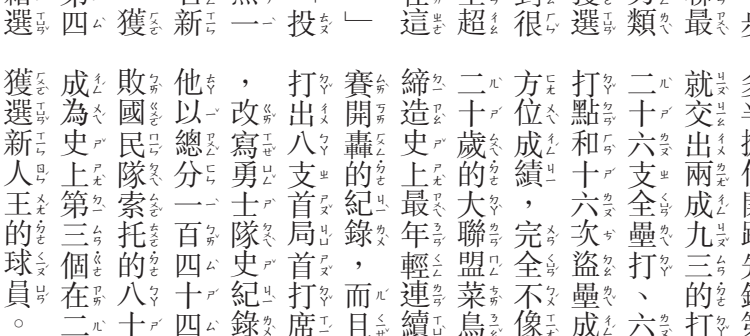 最
類
選
很
超
這
」
投
一
新
獲
四
選
就交出兩成九三的打
二十六支全壘打、六
打點和十六次盜壘成
方位成績，完全不像
二十歲的大聯盟菜鳥
締造史上最年輕連續
賽開轟的紀錄，而且
打出八支首局首打席
，改寫勇士隊史紀錄
他以總分一百四十四
敗國民隊索托的八十
成為史上第三個在二
獲選新人王的球員。